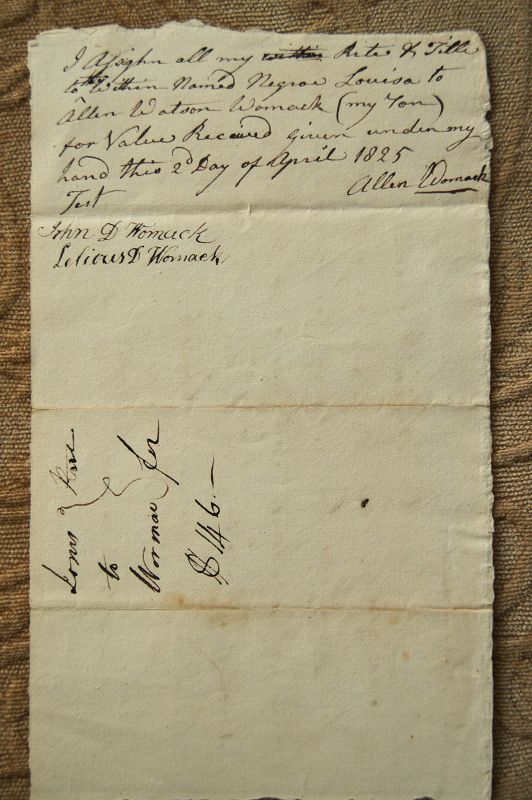 I Assighn all my within Rite & Title
to the Within Named Negroe Louisa to
Allen Watson Womack (my Son)
for Value Received Given under my
hand this 2d Day of April 1825
Allen Womack
Test
John D Womack
D Womack
to
Womac
for
$146.—